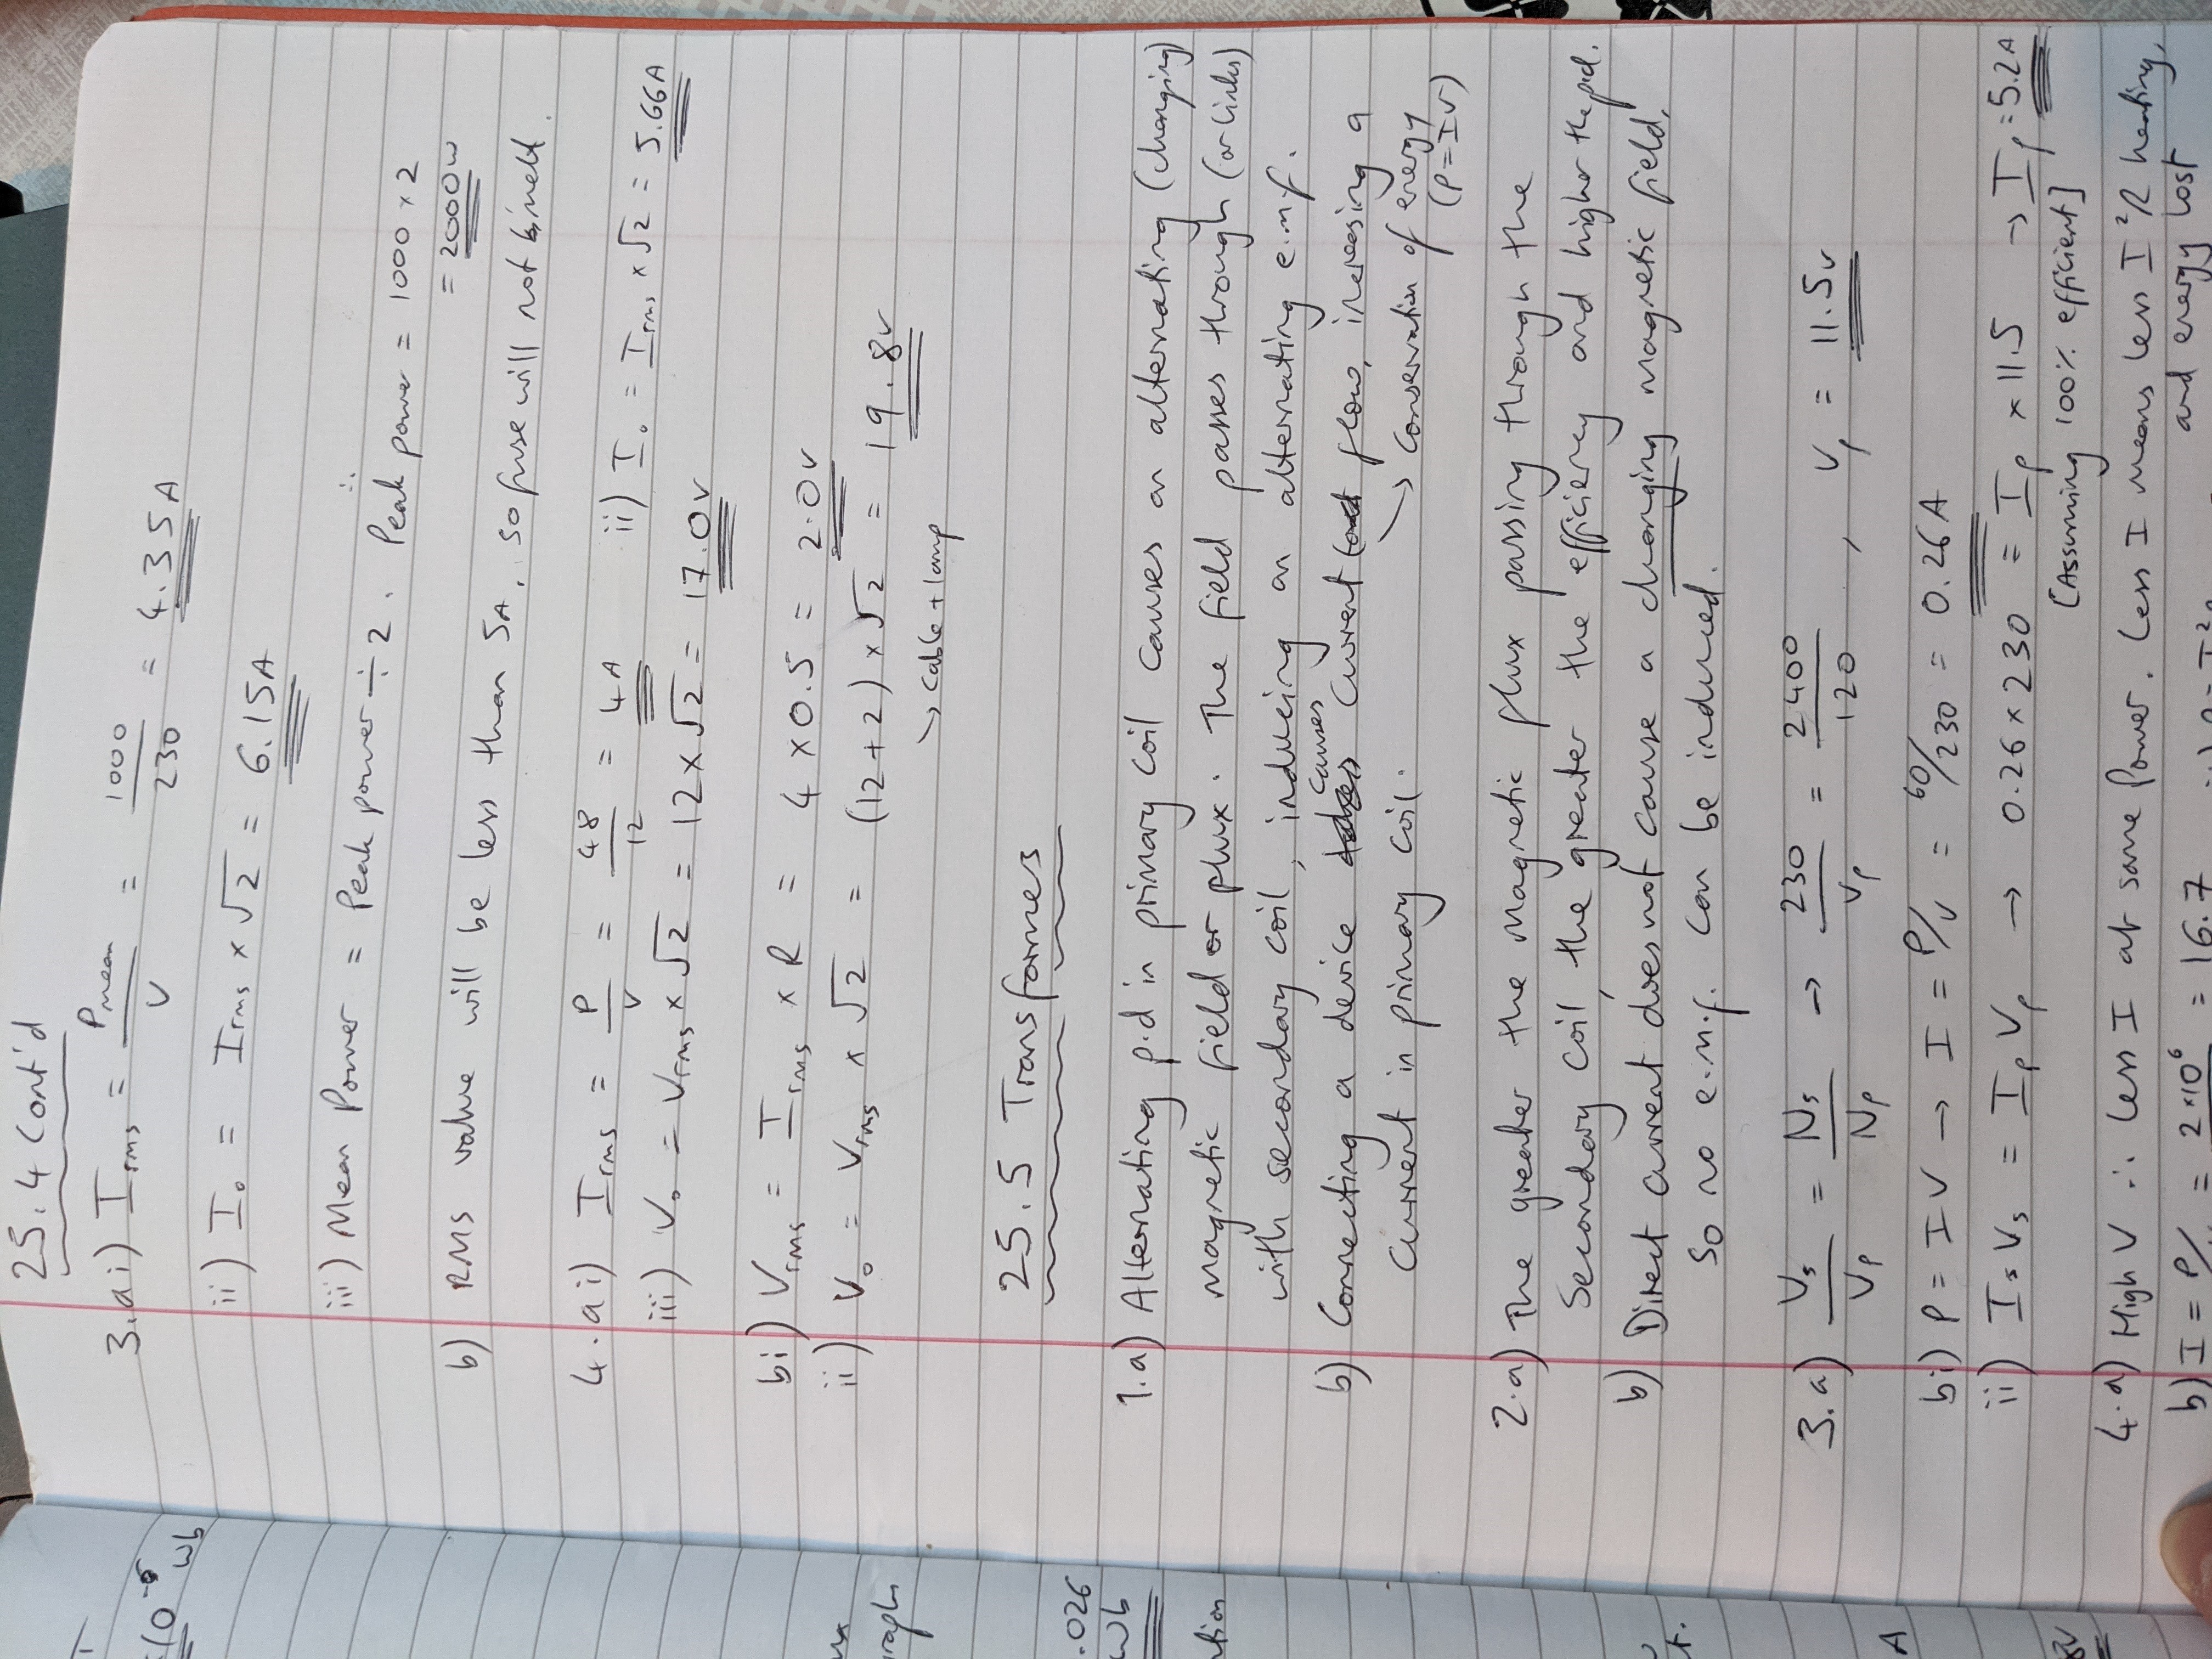 25.4 Cont'd
3.ai) Irms = Pmean/V = 1000/230 = 4.35A
ii) I₀ = Irms × √2 = 6.15A
iii) Mean Power = Peak power ÷ 2. ∴ Peak power = 1000 × 2
= 2000W
b) RMS value will be less than 5A, so fuse will not melt.
4.ai) Irms = P/V = 48/12 = 4A ii) I₀ = Irms × √2 = 5.66A
iii) V₀ = Vrms × √2 = 12 × √2 = 17.0V
bi) Vrms = Irms × R = 4 × 0.5 = 2.0V
ii) V₀ = Vrms × √2 = (12+2) × √2 = 19.8V
→ cable + lamp
25.5 Transformes
1.a) Alternating p.d in primary coil causes an alternating (changing)
magnetic field or flux. The field passes through (or links)
with secondary coil, inducing an alternating e.m.f.
b) Connecting a device causes current flow, increasing a
current in primary coil. → Conservation of energy
(P=IV)
2.a) The greater the magnetic flux passing through the
secondary coil, the greater the efficiency and higher the pd.
b) Direct current does not cause a changing magnetic field,
so no e.m.f. can be induced.
3.a) Vs/Vp = Ns/Np → 230/Vp = 2400/120, Vp = 11.5V
bi) P = IV → I = P/V = 60/230 = 0.26A
ii) IsVs = IpVp → 0.26 × 230 = Ip × 11.5 → Ip = 5.2A
[Assuming 100% efficient]
4.a) High V ∴ less I at same Power. Less I means less I²R heating,
and energy lost
b) I = P/ = 2×10⁶ = 16.7
×10⁻⁵ Wb
.026
Wb
A